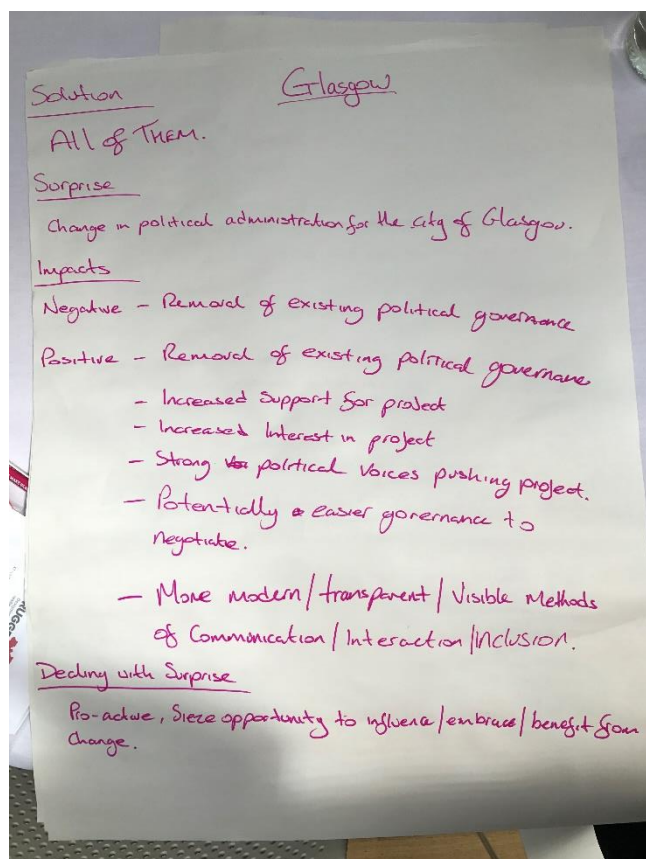 Glasgow
Solution
All of THEM.
Surprise
Change in political administration for the city of Glasgow.
Impacts
Negative – Removal of existing political governance
Positive – Removal of existing political governane
- Increased support for project
- Increased Interest in project
- Strong political voices pushing project.
- Potentially easier governance to
negotiate.
- More modern/transparent/Visible Methods
of Communication/Interaction/Inclusion.
Dealing with Surprise
Pro-active, Sieze opportunity to influence/embrace/benefit from
change.